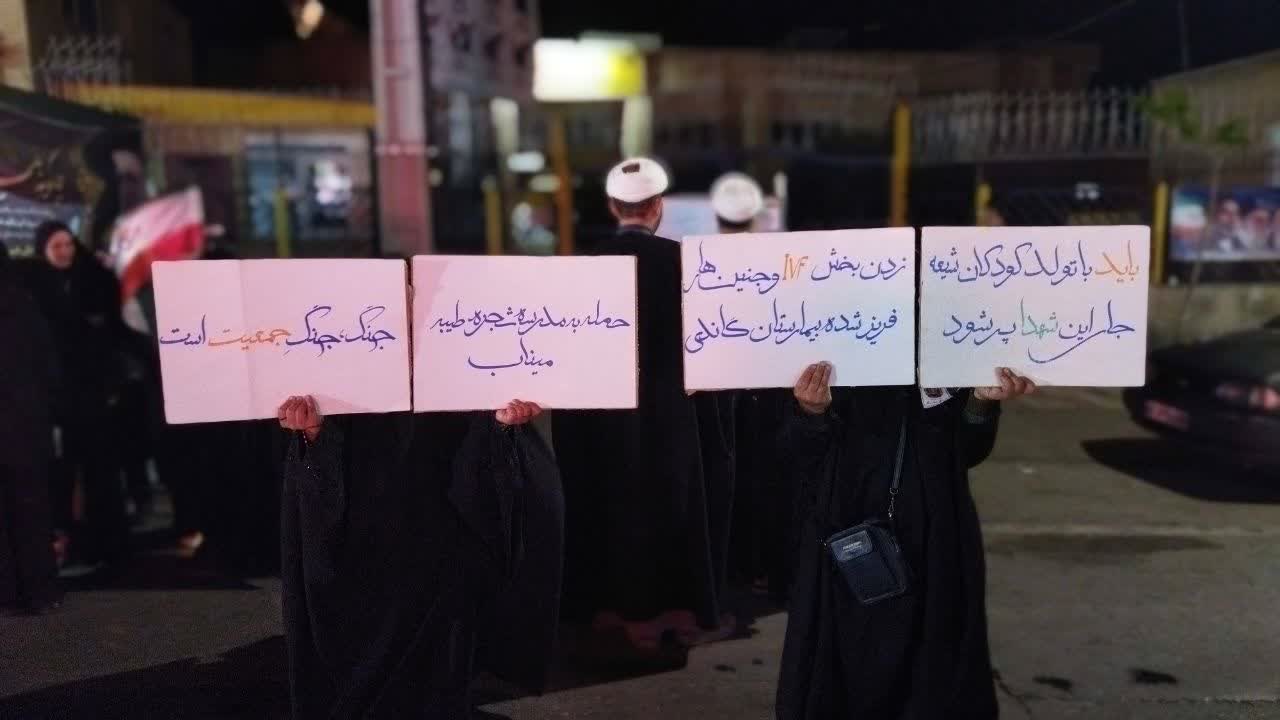 باید با تولد کودکان شیعه
جای این شهدا پر شود
زدن بخش IVF و جنین های
فریز شده بیمارستان گاندی
حمله به مدرسه شجره طیبه
میناب
جنگ، جنگِ جمعیت است